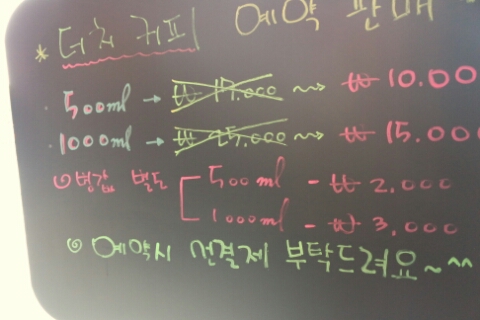 * 더치 커피 예약 판매
· 500ml → ₩ 17.000 ~> ₩ 10.00
· 1000ml → ₩ 25.000 ~> ₩ 15.00
병값 별도 500ml - ₩ 2.000
1000ml - ₩ 3,000
예약시 선결제 부탁드려요~^^